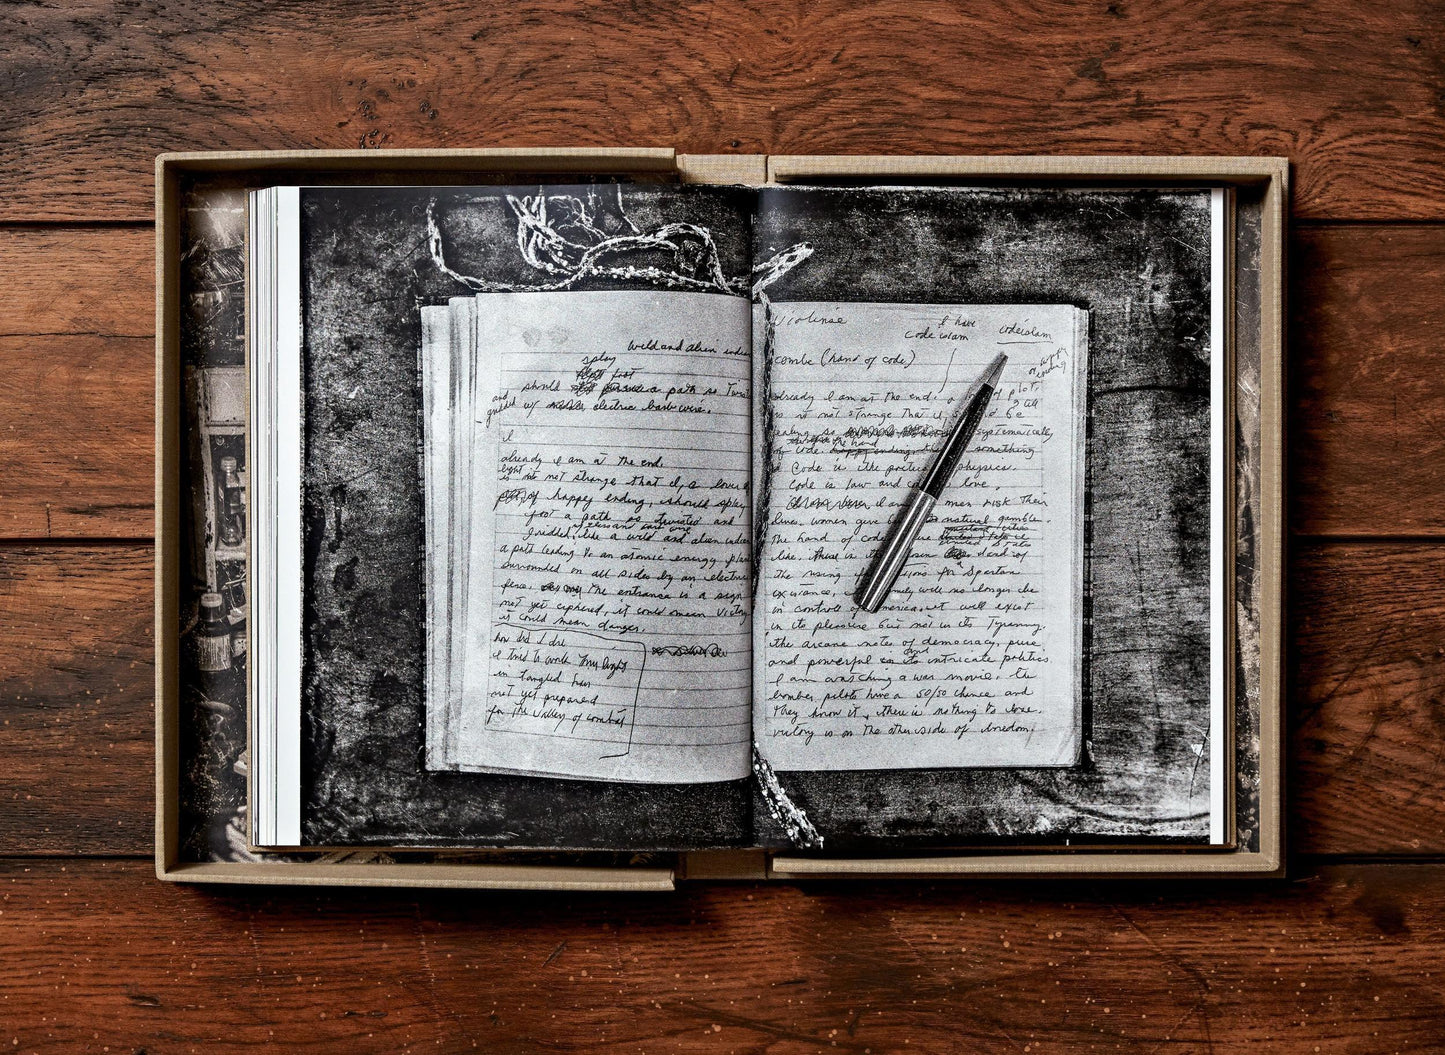 wild and alien indian
splay
just
should a path so twist
and
guided w/ electric barb wire.
I
already I am at the end.
light
is not strange that I, a lover
plot of happy ending, should splay
just a path so twisted and
riddled, like a wild and alien indian
a path leading to an atomic energy plant
surrounded on all sides by an electric
fence. the entrance is a sign
not yet ciphered, it could mean victory
it could mean danger.
how did I die
I tried to walk thru light
in tangled hair
not yet prepared
for the valley of combat
Violense
I have
code islam
code islam
combe (hand of code)
happy
ending
already I am at the end. a plot
is it not strange that I, be
so systematically
the hand
of code. something
Code is the poetics physics.
Code is law and love.
I am men risk their
lives. women give natural gamble.
the hand of code
like. there is dead of
the rising for Spartan
existence, will no longer be
in control America. it will exist
in its pleasure but not in its Tyranny.
the arcane notes of democracy, pure
and
and powerful to intricate politics
I am watching a war movie. the
bomber pilots have a 50/50 chance and
they know it, there is nothing to lose.
victory is on the other side of